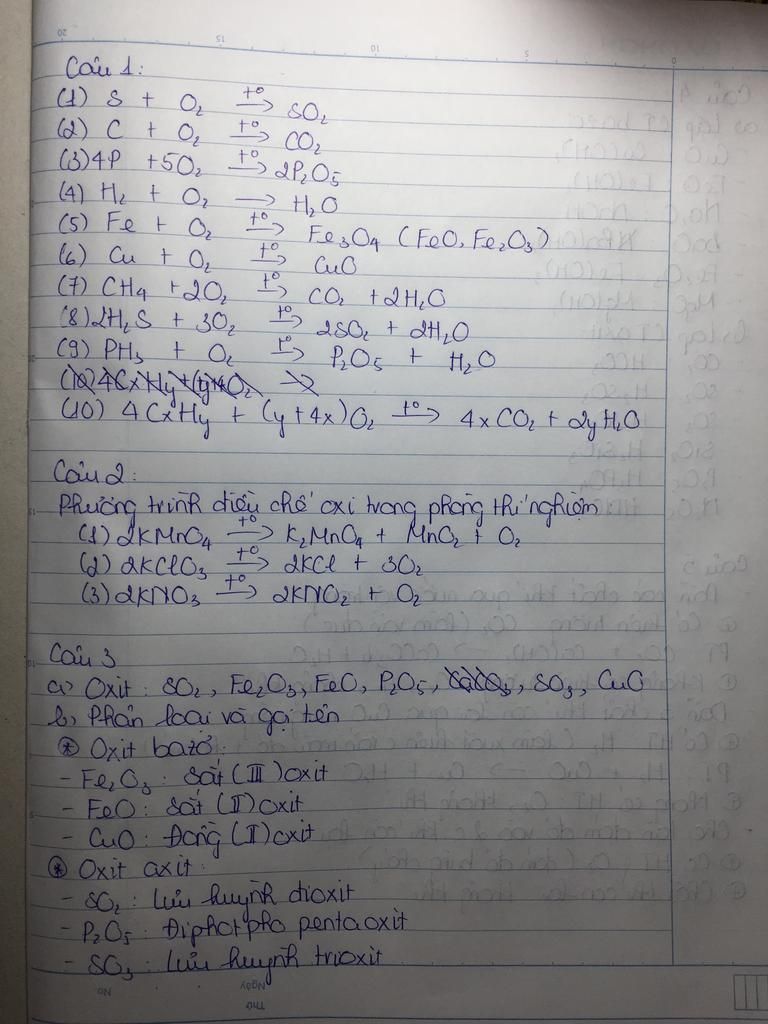 Câu 1:
(1) S + O₂ –t°→ SO₂
(2) C + O₂ –t°→ CO₂
(3) 4P + 5O₂ –t°→ 2P₂O₅
(4) H₂ + O₂ → H₂O
(5) Fe + O₂ –t°→ Fe₃O₄ (FeO, Fe₂O₃)
(6) Cu + O₂ –t°→ CuO
(7) CH₄ + 2O₂ –t°→ CO₂ + 2H₂O
(8) 2H₂S + 3O₂ –t°→ 2SO₂ + 2H₂O
(9) PH₃ + O₂ –t°→ P₂O₅ + H₂O
(10) 4CxHy + (y+4x)O₂ –t°→ 4xCO₂ + 2yH₂O
Câu 2:
Phương trình điều chế oxi trong phòng thí nghiệm:
(1) 2KMnO₄ –t°→ K₂MnO₄ + MnO₂ + O₂
(2) 2KClO₃ –t°→ 2KCl + 3O₂
(3) 2KNO₃ –t°→ 2KNO₂ + O₂
Câu 3
a) Oxit: SO₂, Fe₂O₃, FeO, P₂O₅, CaCO₃, SO₃, CuO
b, Phân loại và gọi tên
* Oxit bazơ:
- Fe₂O₃: Sắt (III) oxit
- FeO: Sắt (II) oxit
- CuO: Đồng (II) oxit
* Oxit axit:
- SO₂: Lưu huỳnh đioxit
- P₂O₅: Điphotpho pentaoxit
- SO₃: Lưu huỳnh trioxit